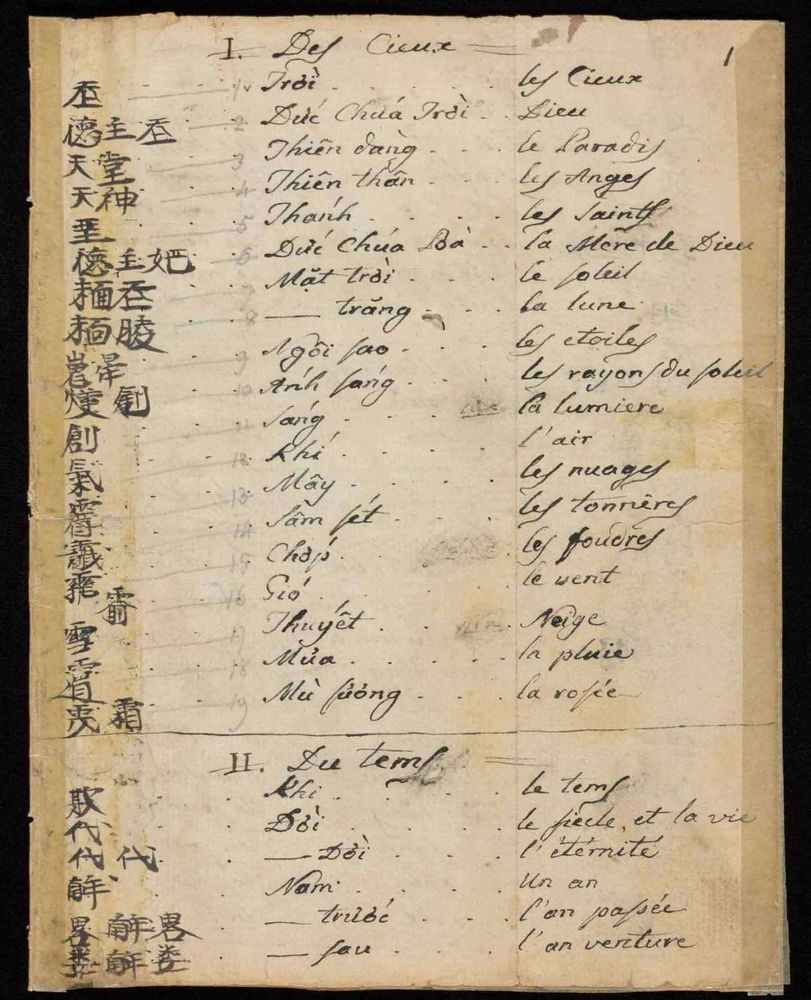 1
I. Des Cieux
𡗶 1. Trời les Cieux
德主𡗶 2 Đức Chúa Trời Dieu
天堂 3 Thiên đàng le Paradis
天神 4 Thiên thần les Anges
聖 5 Thánh les Saints
德主妑 6 Đức Chúa Bà la Mère de Dieu
𩈘𡗶 7 Mặt trời le soleil
8 — trăng la lune
9 Ngôi sao les etoiles
10 Ánh sáng les rayons du soleil
創 11 sáng la lumiere
氣 12 Khí l'air
13 Mây les nuages
14 Sấm sét les tonnères
15 Chớp les foudres
16 Gió le vent
雪 17 Thuyết Neige
18 Mưa la pluie
霜 19 Mù sương la rosée
II. Du tems
欺 Khi le tems
代 Đời le siècle, et la vie
代代 — Đời l'étérnité
Nam Un an
畧 — trước l'an passée
— sau l'an venture